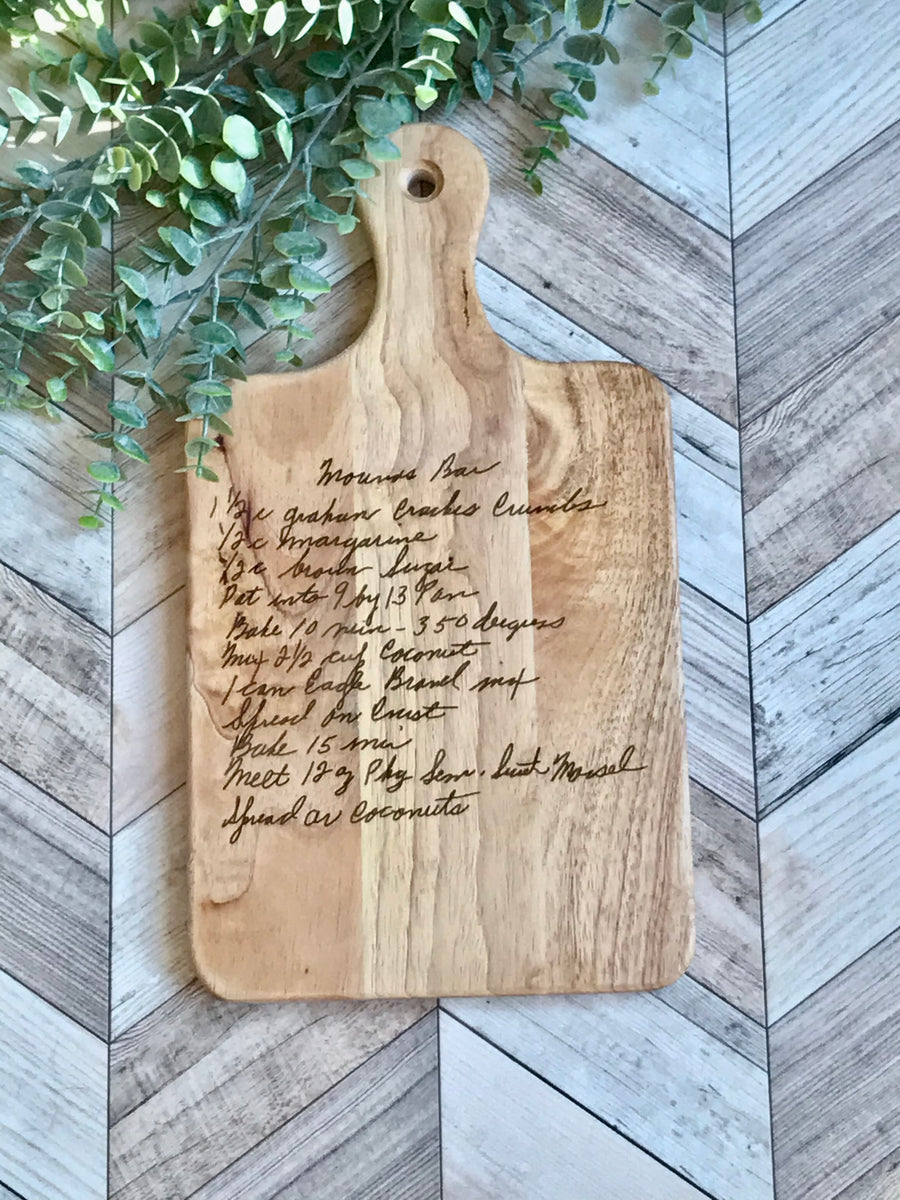 Mounds Bar
1 1/2 c graham Crackes Crumbs
1/2 c margarine
1/2 c brown Sugar
Pat into 9 by 13 Pan
Bake 10 min - 350 degress
Mix 2 1/2 cup Coconut
1 can Eagle Brand mix
Spread on Crust
Bake 15 min
Melt 12 oz Pkg Sem. Sweet Morsel
Spread on Coconuts